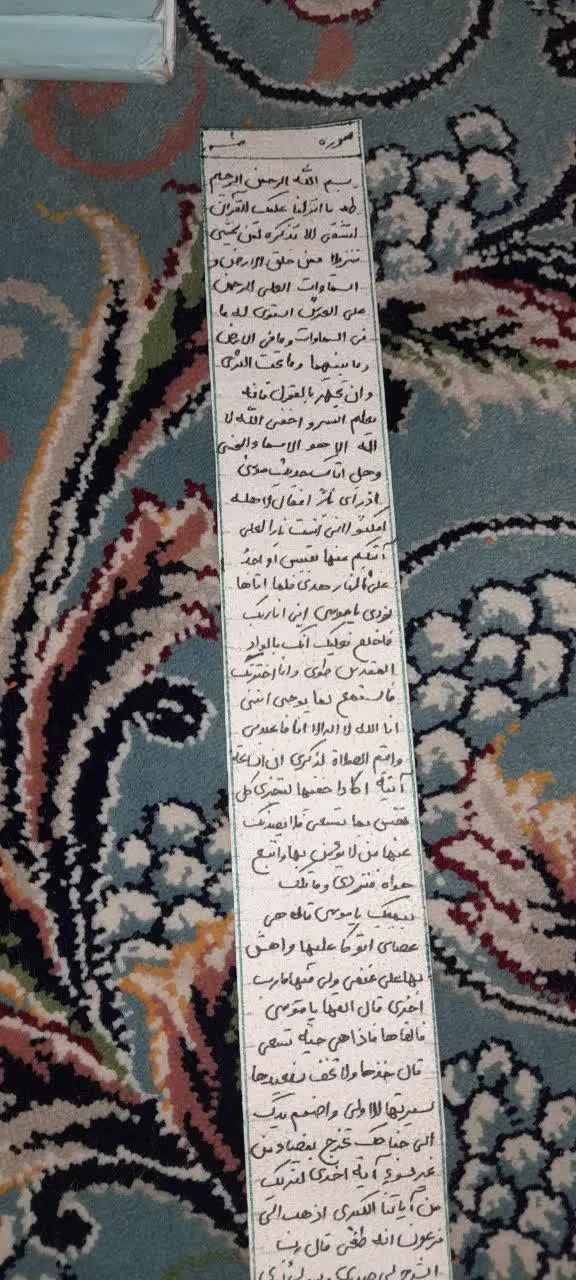 سوره طه
بسم الله الرحمن الرحیم
طه ما انزلنا علیک القرآن
لتشقی الا تذکره لمن یخشی
تنزیلا ممن خلق الارض و
السماوات العلی الرحمن
علی العرش استوی له ما
فی السماوات و ما فی الارض
و ما بینهما و ما تحت الثری
وان تجهر بالقول فانه
یعلم السر و اخفی الله لا
اله الا هو الاسماء الحسنی
وهل اتاک حدیث موسی
اذ رای نارا فقال لاهله
امکثوا انی آنست نارا لعلی
آتیکم منها بقبس او اجد
علی النار هدی فلما اتاها
نودی یا موسی انی انا ربک
فاخلع نعلیک انک بالواد
المقدس طوی وانا اخترتک
فاستمع لما یوحی اننی
انا الله لا اله الا انا فاعبدنی
واقم الصلاة لذکری ان الساعة
آتیة اکاد اخفیها لتجزی کل
نفس بما تسعی فلا یصدنک
عنها من لا یومن بها واتبع
هواه فتردی وما تلک
بیمینک یا موسی قال هی
عصای اتوکا علیها و اهش
بها علی غنمی ولی فیها مارب
اخری قال القها یا موسی
فالقاها فاذا هی حیة تسعی
قال خذها ولا تخف سنعیدها
سیرتها الاولی واضمم یدک
الی جناحک تخرج بیضاء من
غیر سوء آیة اخری لنریک
من آیاتنا الکبری اذهب الی
فرعون انه طغی قال رب
اشرح لی صدری و یسر لی